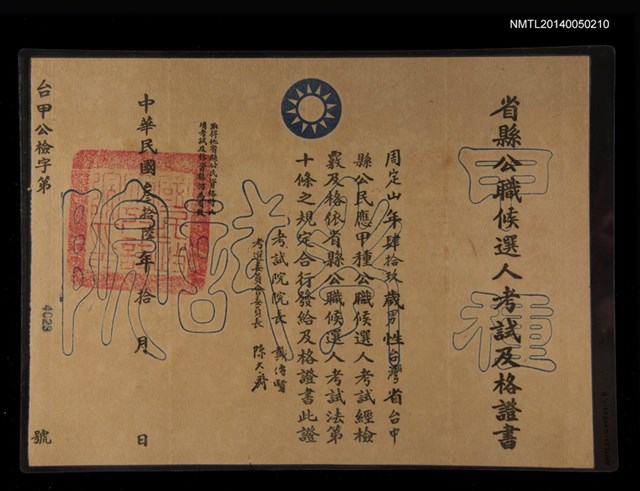 NMTL20140050210
省縣公職候選人考試及格證書
甲種
周定山年肆拾玖歲男性台灣省台中
縣公民應甲種公職候選人考試經檢
覈及格依省縣公職候選人考試法第
十條之規定合行發給及格證書此證
考試院院長 戴傳賢
考選委員會委員長 陳大齊
中華民國叁拾陸年拾月 日
台甲公檢字第 4023 號